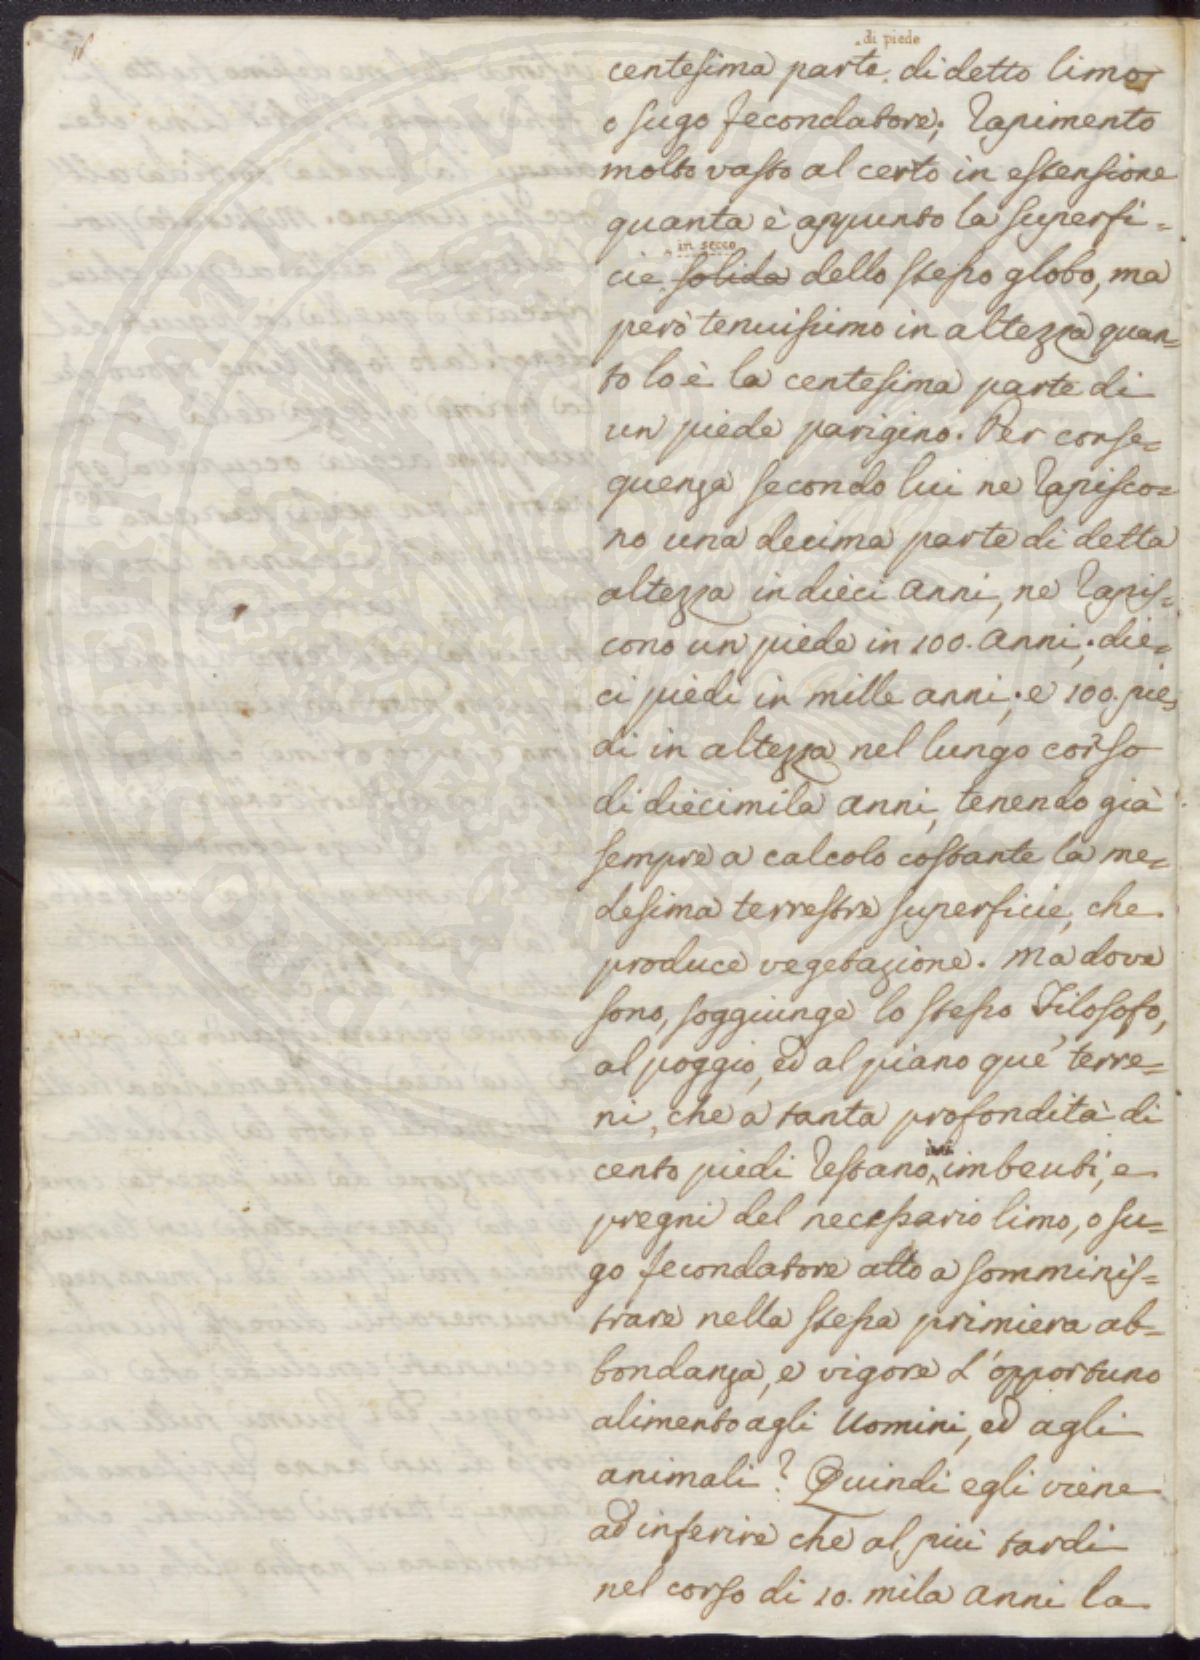 di piede
centesima parte di detto limo
o sugo fecondatore; rapimento
molto vasto al certo in estensione
quanta è appunto la superfi=
in secco
cie solida dello stesso globo, ma
però tenuissimo in altezza quan=
to lo è la centesima parte di
un piede parigino. Per conse=
quenza secondo lui ne rapisco=
no una decima parte di detta
altezza in dieci anni, ne rapis=
cono un piede in 100. anni; die=
ci piedi in mille anni; e 100. pie=
di in altezza nel lungo corso
di diecimila anni, tenendo già
sempre a calcolo costante la me=
desima terrestre superficie, che
produce vegetazione. Ma dove
sono, soggiunge lo stesso Filosofo,
al poggio, ed al piano que' terre=
ni, che a tanta profondità di
cento piedi restano imbeuti, e
pregni del necessario limo, o su=
go fecondatore atto a somminis=
trare nella stessa primiera ab=
bondanza, e vigore l'opportuno
alimento agli Uomini, ed agli
animali? Quindi egli viene
ad inferire che al più tardi
nel corso di 10. mila anni la